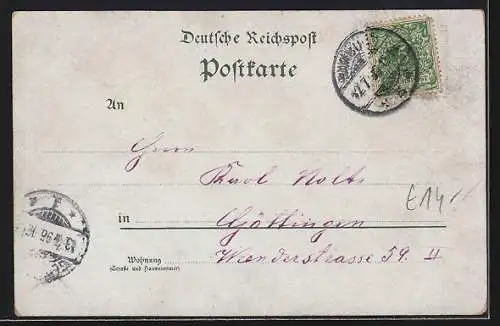 Deutsche Reichspost
Postkarte
An
Herrn
Karl Nolte
in Göttingen
Weenderstrasse 59. II
Wohnung
(Straße und Hausnummer)
E14